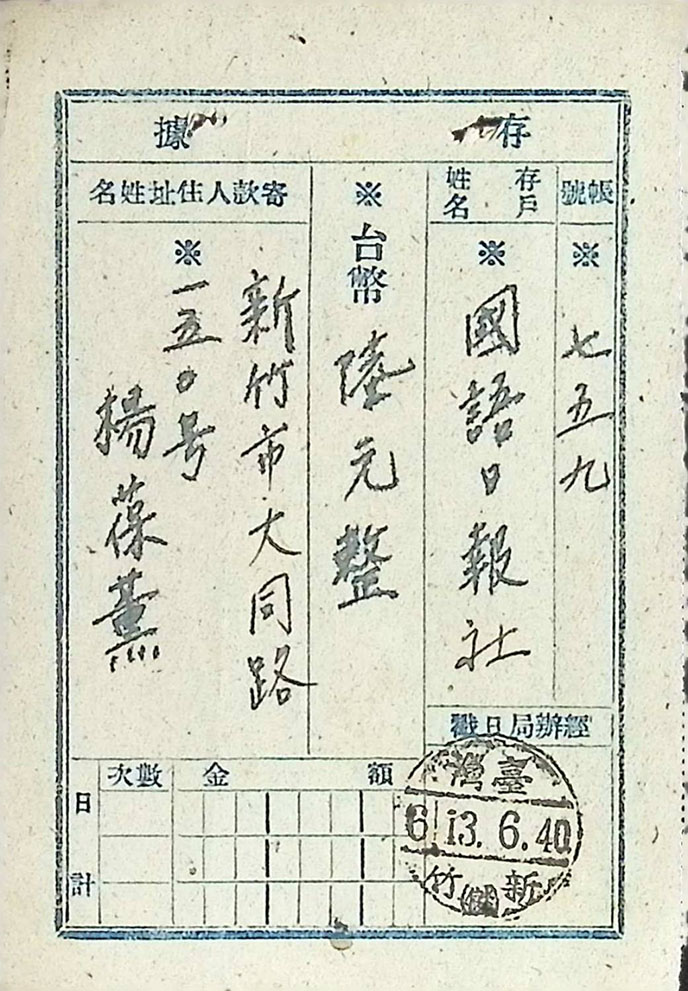 存據
帳號
※
七五九
存戶
姓名
※
國語日報社
※台幣 陸元整
寄款人住址姓名
※
新竹市大同路
一五〇号
楊葆薰
經辦局日戳
臺灣
6 13.6.40
新竹
日計
次數
金額